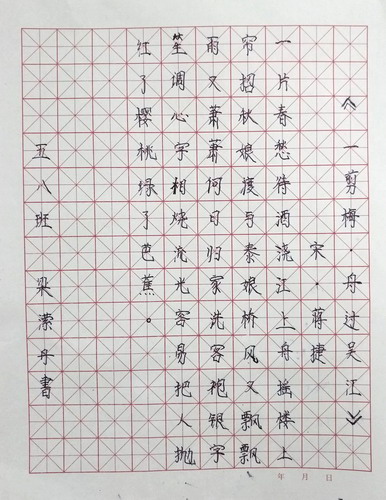 《一剪梅·舟过吴江》
宋·蒋捷
一片春愁待酒浇江上舟摇楼上
帘招秋娘渡与泰娘桥风又飘飘
雨又萧萧何日归家洗客袍银字
笙调心字相烧流光容易把人抛
红了樱桃绿了芭蕉。
五八班 梁濛丹書
年 月 日